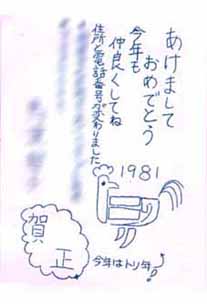 あけまして
おめでとう
今年も
仲良くしてね
住所と電話番号が変わりました
1981
賀正
今年はトリ年!